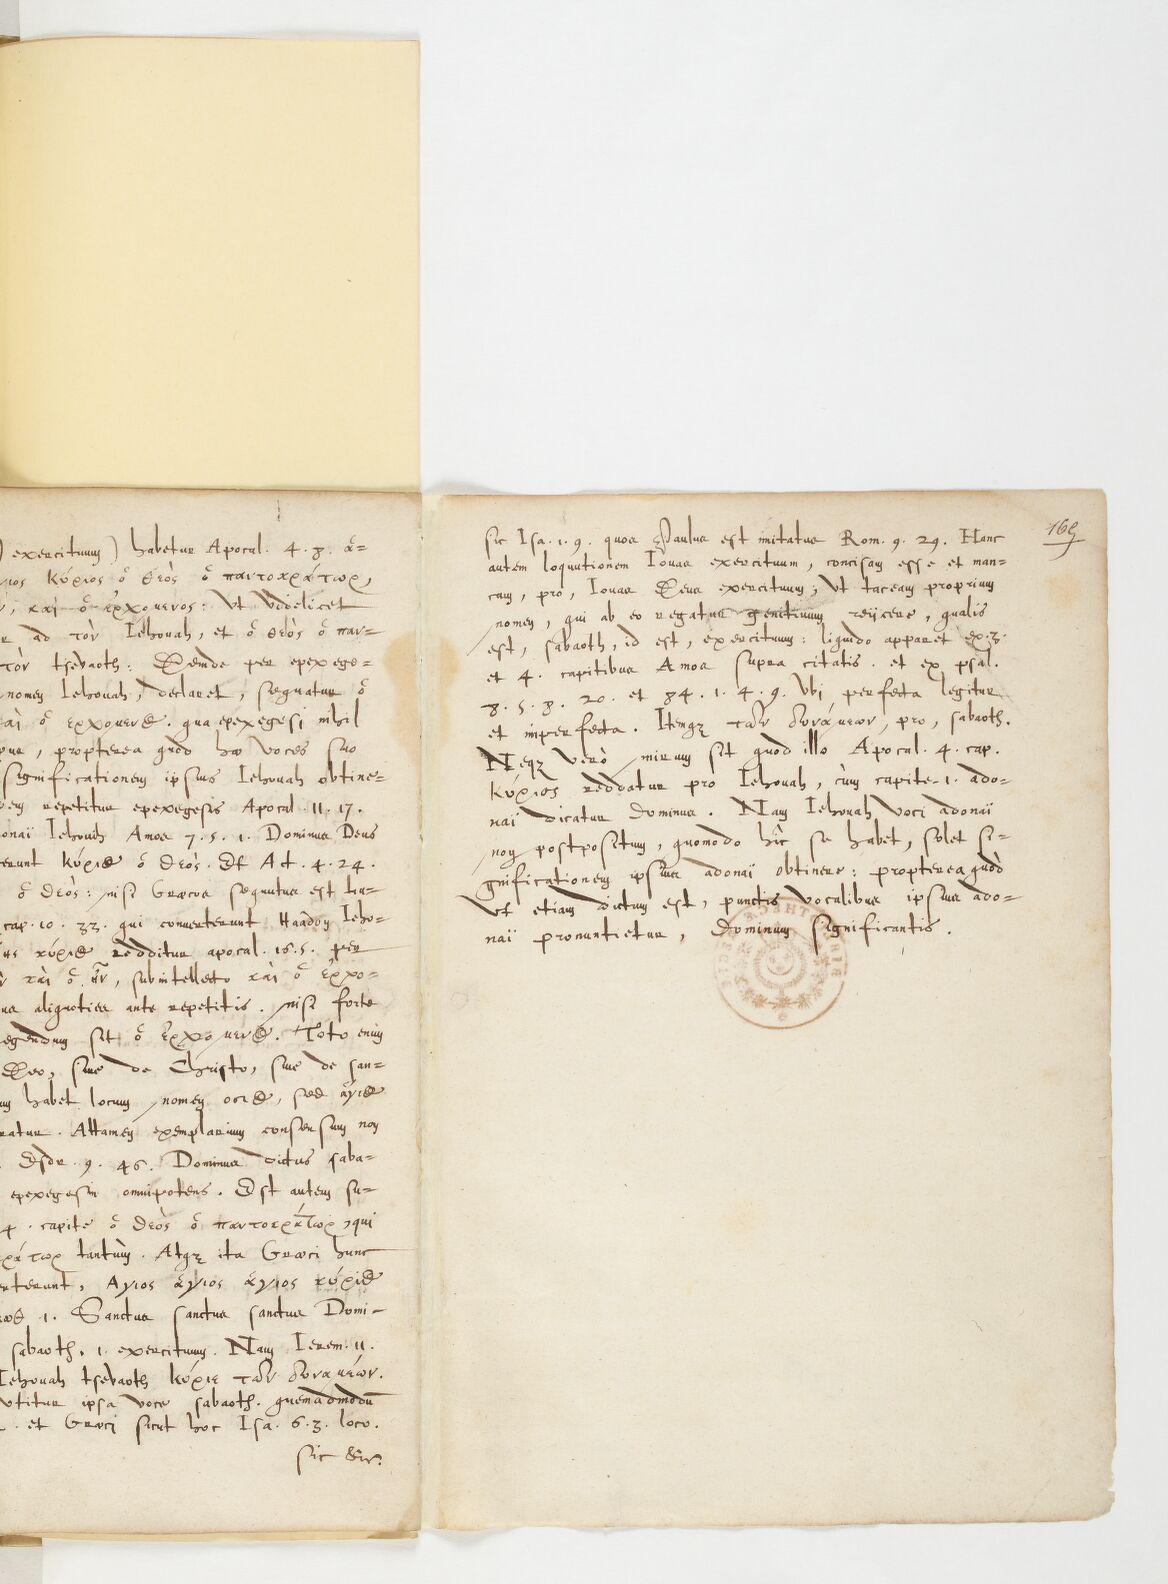 ) exercituum) habetur Apocal. 4. 8. ἅ-
γιος Κύριος ὁ θεὸς ὁ παντοκράτωρ,
, καὶ ὁ ἐρχόμενος: Vt videlicet
ad τὸν Iehouah, et ὁ θεὸς ὁ παν-
τὸν tseuaoth: Deinde per epexege-
nomen Iehouah, declaret, sequatur ὁ
καὶ ὁ ἐρχόμενος. qua epexegesi nihil
, propterea quod hæ voces suo
significationem ipsius Iehouah obtine-
repetitur epexegesis Apocal. 11. 17.
Iehouih Amos 7. 5. 1. Dominus Deus
Κύριος ὁ θεὸς. Et Act. 4. 24.
ὁ θεὸς: nisi Græcos sequutus est Lu-
cap. 10. 33. qui conuerterunt Haadon Ieho-
κύριος redditur apocal. 16. 5. per
καὶ ὁ ἦν, subintellecto καὶ ὁ ἐρχό-
aliquoties ante repetitis. nisi forte
legendum sit ὁ ἐρχόμενος. Toto enim
Deo, siue de Christo, siue de san-
habet locum nomen ὅσιος, sed ἅγιος
. Attamen exemplarium consensum non
Esdr. 9. 46. Dominus dictus saba-
epexegesin omnipotens. Est autem su-
4. capite ὁ θεὸς ὁ παντοκράτωρ, qui
κράτωρ tantùm. Atque ita Græci hunc
, Ἅγιος ἅγιος ἅγιος κύριος
1. Sanctus sanctus sanctus Domi-
sabaoth. 1. exercituum. Nam Ierem. 11.
Iehouah tseuaoth κύριε τῶν δυνάμεων.
vtitur ipsa voce sabaoth. quemadmodū
. et Græci sicut hoc Isa. 6. 3. loco.
sic &c.
165
sic Isa. 1. 9. quos Paulus est imitatus Rom. 9. 29. Hanc
autem loquutionem Iouas exercituum, concisam esse et man-
cam, pro, Iouas Deus exercituum; vt taceam proprium
nomen, qui ab eo regatur genitiuum reijcere, qualis
est, sabaoth, id est, exercituum: liquido apparet ex 3.
et 4. capitibus Amos supra citatis. et ex psal.
8. 5. 8. 20. et 84. 1. 4. 9. Vbi perfecta legitur
et imperfecta. Itemq; τῶν δυνάμεων, pro, sabaoth.
Neq; verò mirum sit quod illo Apocal. 4. cap.
κύριος reddatur pro Iehouah, cùm capite 1. ado-
naï dicatur Dominus. Nam Iehouah voci adonaï
non postpositum, quomodo hîc se habet, solet si-
gnificationem ipsius adonaï obtinere: propterea quòd
Vt etiam dictum est, punctis vocalibus ipsius ado-
naï pronuntietur, Dominum significantis.